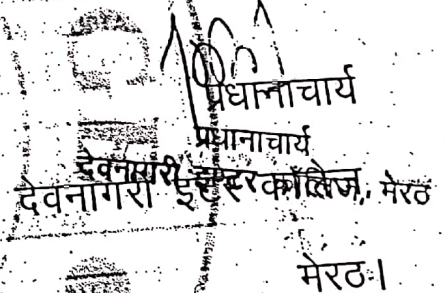 प्रधानाचार्य
प्रधानाचार्य
देवनागरी इण्टर कॉलिज, मेरठ
देवनागरी इण्टर कॉलेज
मेरठ।